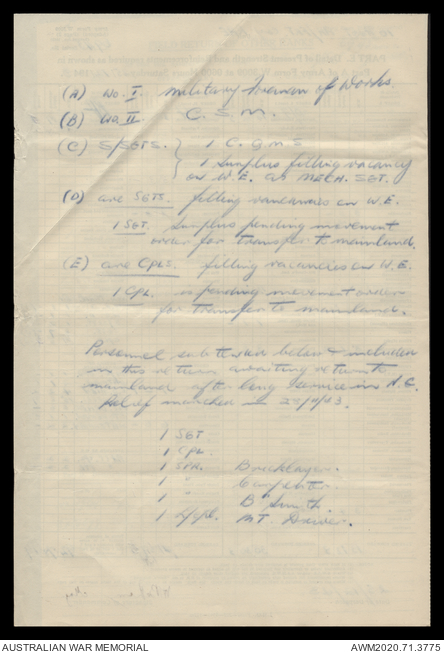 (A) WO.I. Military Foreman of Works.
(B) WO.II. C.S.M.
(C) S/SGTS. 1 C.Q.M.S
1 Surplus filling vacancy
on W.E. as MECH. SGT.
(D) are SGTS. filling vacancies on W.E.
1 SGT. Surplus pending movement
order for transfer to mainland.
(E) are CPLS. filling vacancies on W.E.
1 CPL. is pending movement order
for transfer to mainland.
Personnel below included
in this return awaiting return to
mainland after long service in N.G.
Relief marched in
1 SGT
1 CPL.
1 SPR. Bricklayer.
1 " Carpenter.
1 " B'Smith.
1 L/Cpl. MT. Driver.
AUSTRALIAN WAR MEMORIAL
AWM2020.71.3775